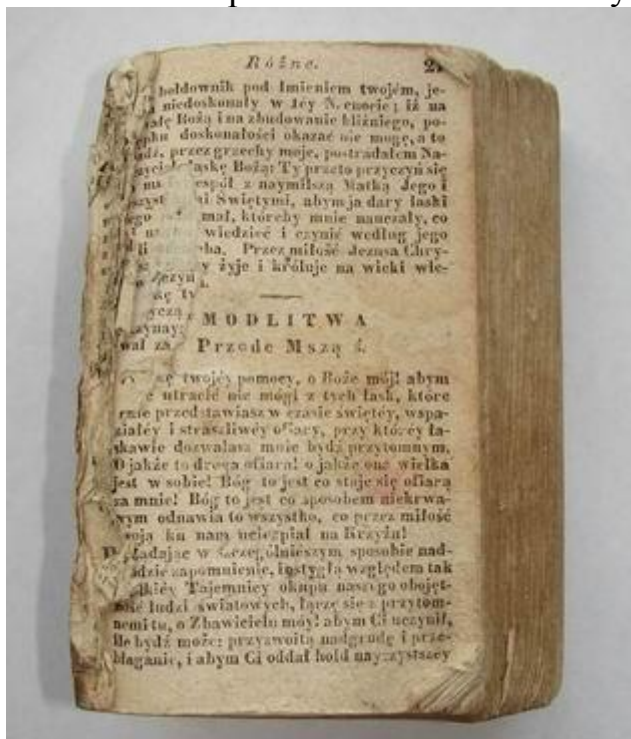 Różne. 2
hołdownik pod Imieniem twojém, je-
niedoskonały w tey N. cnocie; iż na
Bożą i na zbudowanie bliźniego, po-
doskonałości okazać nie mogę, a to
przez grzechy moje, postradałem Na-
łaskę Bożą: Ty przeto przyczyń się
z naymilszą Matką Jego i
Swiętymi, abym ja dary łaski
miał, któreby mnie nauczały, co
wiedzieć i czynić według jego
Przez miłość Jezusa Chry-
żyje i króluje na wieki wie-
MODLITWA
Przede Mszą ś.
twojéy pomocy, o Boże mój! abym
utracić nie mógł z tych łask, które
przedstawiasz w czasie świętéy, wspa-
niałéy i straszliwéy ofiary, przy któréy ła-
skawie dozwalasz mnie bydź przytomnym.
O jakże to droga ofiara! o jakże ona wielka
jest w sobie! Bóg to jest co staje się ofiarą
za mnie! Bóg to jest co sposobem niekrwa-
wym odnawia to wszystko, co przez miłość
swoją ku nam ucierpiał na Krzyżu!
w szczególnieyszym sposobie nad-
zapomnienie, i ostygłą względem tak
Tajemnicy okupu naszego obojęt-
ność ludzi światowych, łączę się z przytom-
nemi tu, o Zbawicielu móy! abym Ci uczynił,
ile bydź może: przyzwoitą nadgrodę i prze-
błaganie, i abym Ci oddał hołd nayczystszey